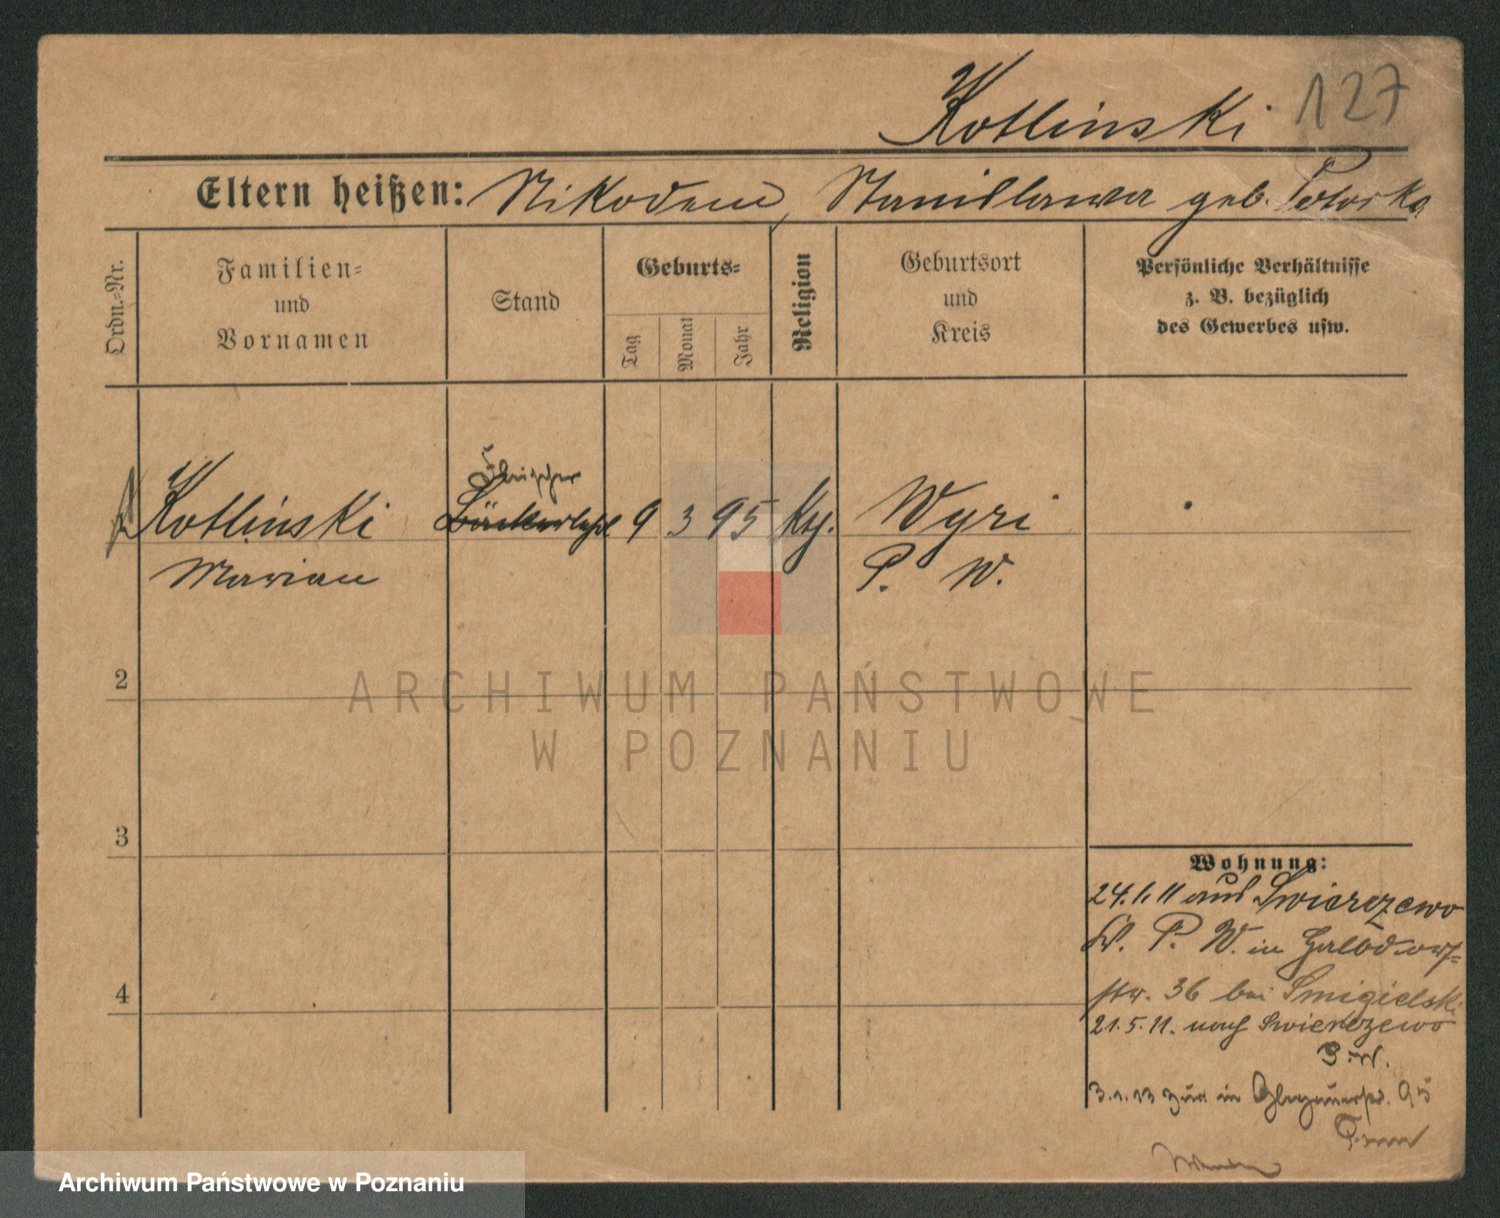 Kotlinski 127
Eltern heißen: Nikodem, Stanislawa geb.
Ordn.-Nr.
Familien-
und
Vornamen
Stand
Geburts-
Tag
Monat
Jahr
Religion
Geburtsort
und
Kreis
Persönliche Verhältnisse
z. B. bezüglich
des Gewerbes usw.
Kotlinski
Marian
Bäckerlehrl
9 3 95
Wyri
P. W.
2
3
4
Wohnung:
24.1.11 aus Swierczewo
P. W. in
str. 36 bei Smigielski
21.5.11. nach Swierczewo
P. W.
3.1.13 zur in 95
ARCHIWUM PAŃSTWOWE
W POZNANIU
Archiwum Państwowe w Poznaniu